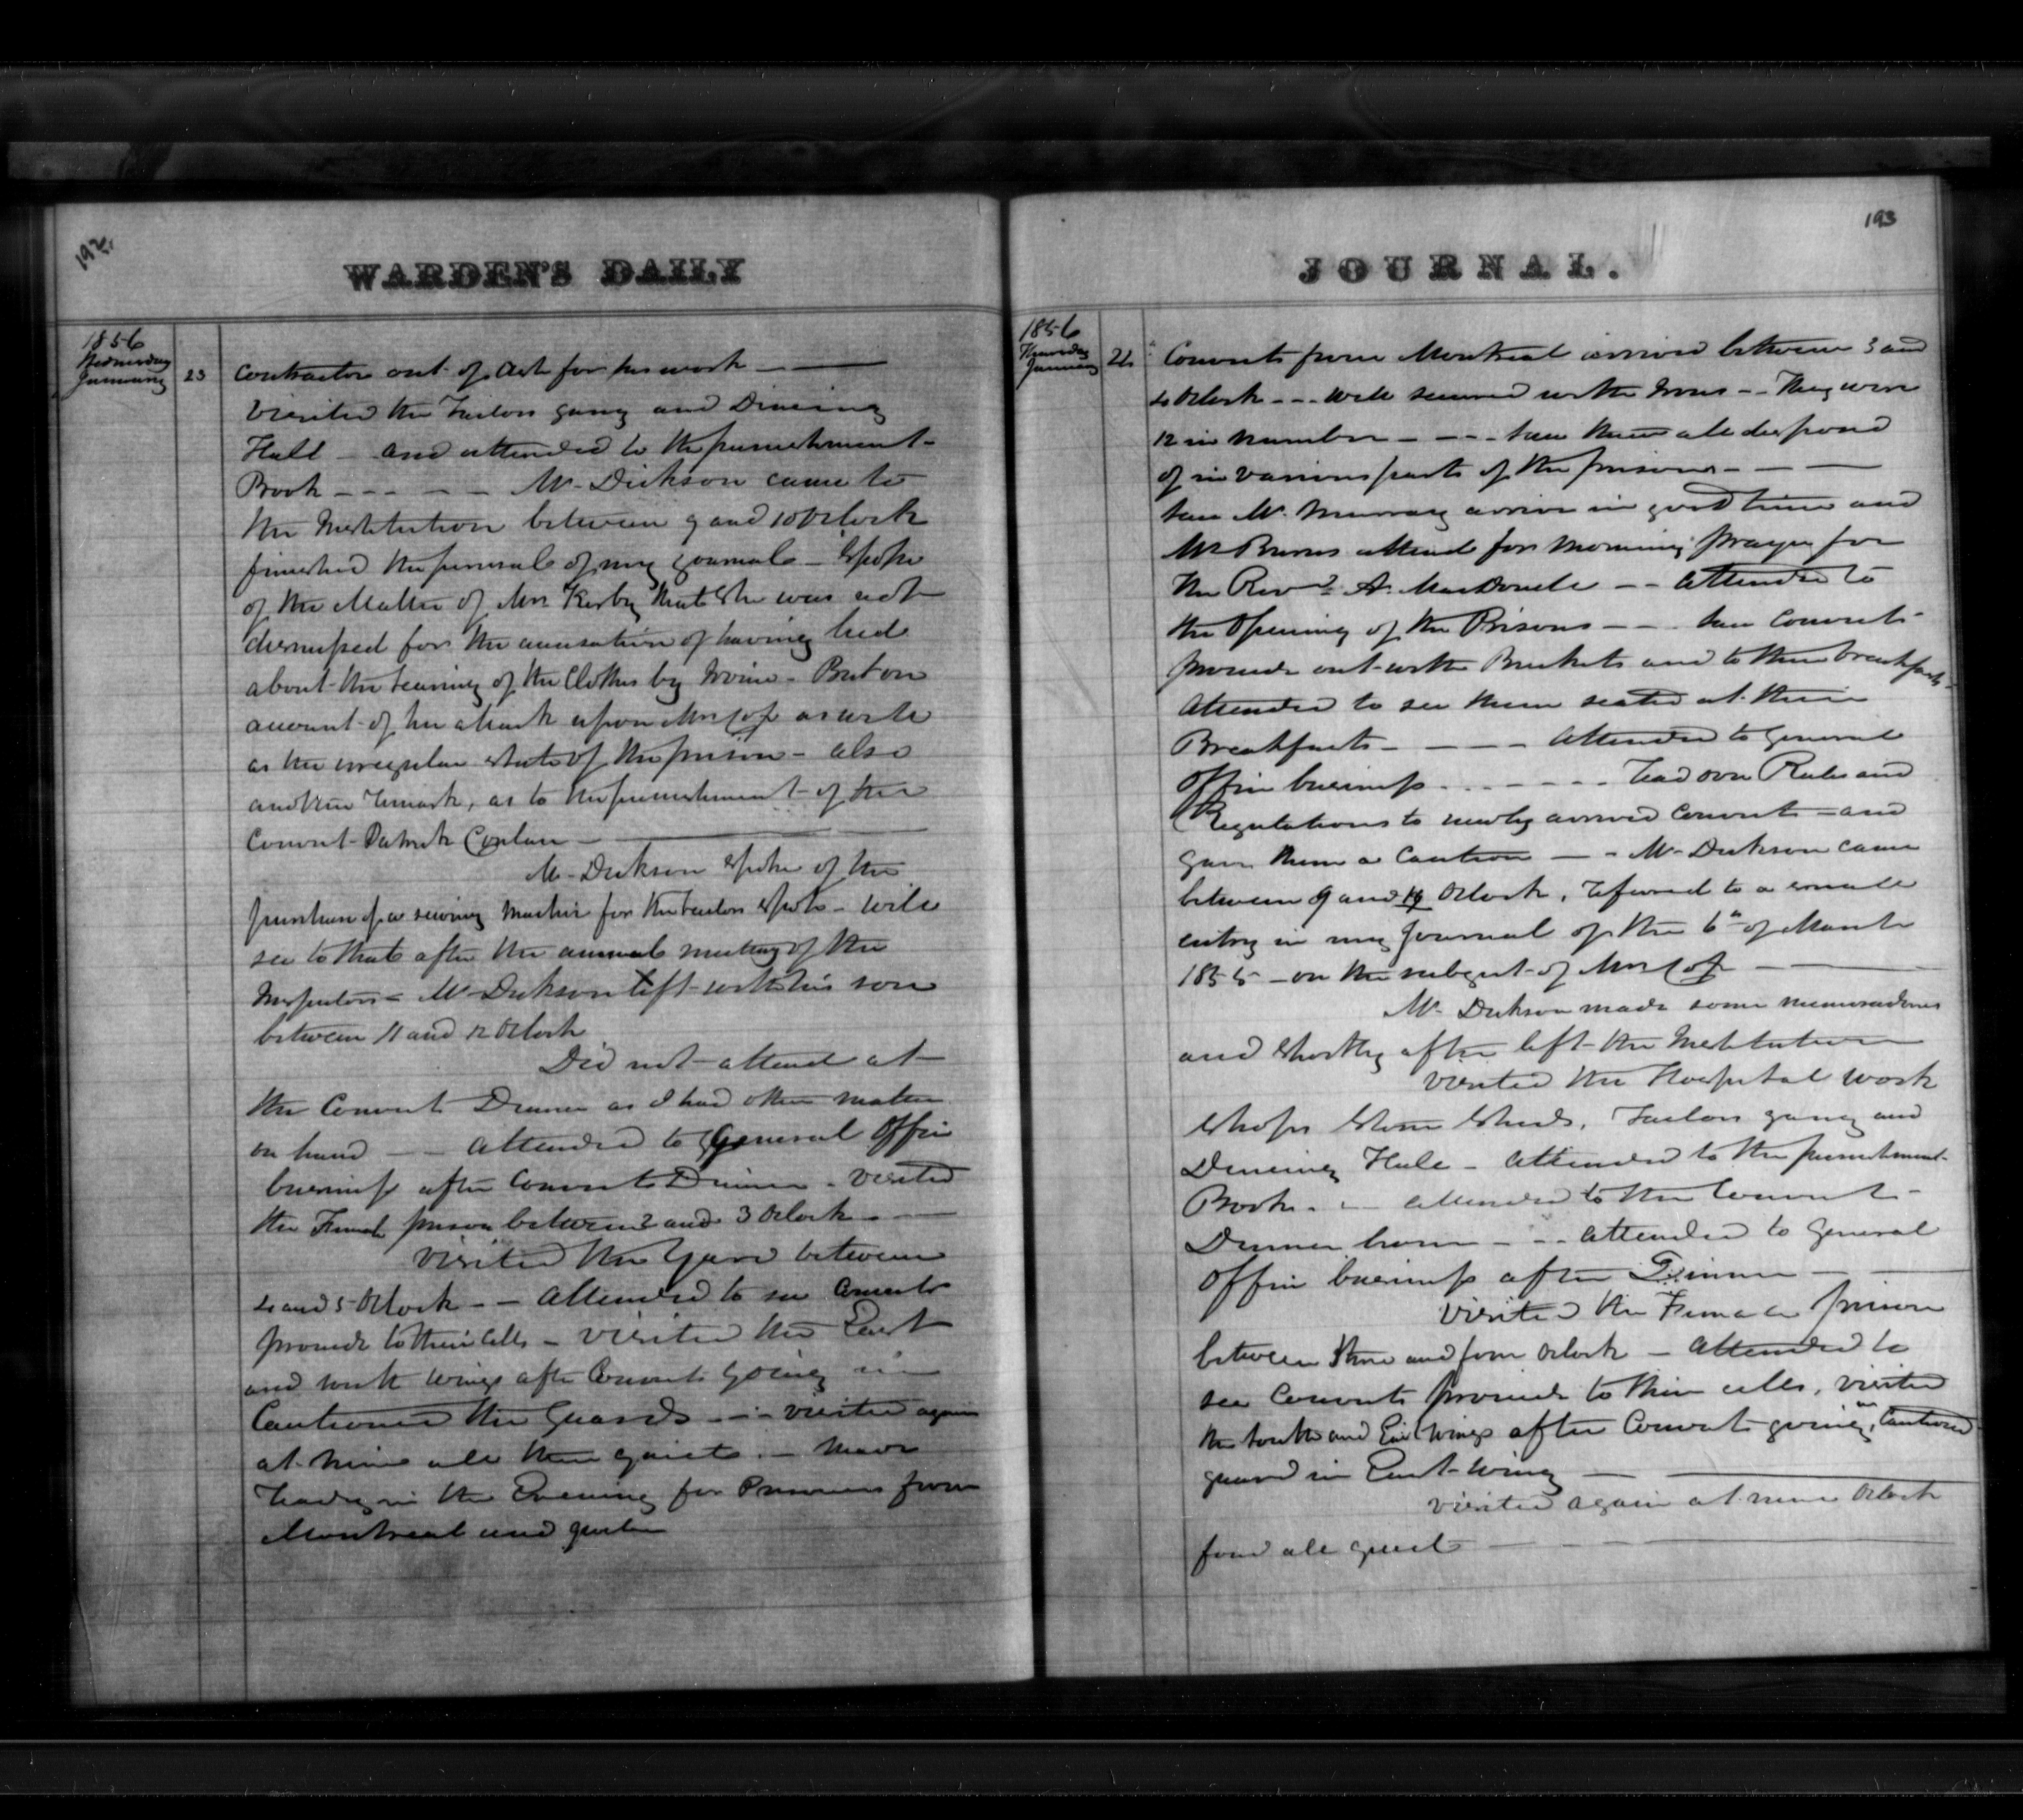 192.
WARDEN'S DAILY
1856
Wednesday
January 23
Contractor out of debt for his work
Visited the Tailors gang and Dineing
Hall - and attended to the punishment
Book - - - - - Mr. Dickson came to
the Institution between 9 and 10 Oclock
finished the perusal of my journal - Spoke
of the Matter of Mrs. Kerby that She was not
dismissed for the accusation of having lied
about the tearing of the Clothes by Irvine - But on
account of her attack upon Mrs Cox as well
as the irregular State of the prison - also
another remark, as to the punishment of the
Convict Patrick Conlan -
Mr. Dickson Spoke of the
purchase of a sewing Machine for the tailors Shop - will
see to that after the annual meeting of the
Inspectors - Mr. Dickson left with his son
between 11 and 12 Oclock
Did not attend at
the Convicts Dinner as I had other matters
on hand - - attended to General Office
business after Convicts Dinner - visited
the Female prison between 2 and 3 Oclock -
Visited the Yard between
4 and 5 Oclock - - Attended to see Convicts
proceed to their Cells - Visited the East
and South Wings after Convicts going in -
Cautioned the Guards - - visited again
at nine all then quiet. - have
ready in the Evening for Prisoners from
Montreal and Quebec
193
JOURNAL.
1856
Thursday
January 24
Convicts from Montreal arrived between 3 and
4 Oclock - - - well secured with Irons - - They were
12 in number - - - - saw them all disposed
of in various parts of the prisons - - -
saw Mr. Murray arrive in good time and
Mr Burns attend for Morning prayer for
the Revd. A. MacDonell - - attended to
the Opening of the Prisons - - - saw Convicts
proceed out with Buckets and to their breakfasts
Attended to see them seated at their
Breakfasts - - - - attended to General
Office business - - - - - - read over Rules and
Regulations to newly arrived Convicts - and
gave them a Caution - - Mr. Dickson came
between 9 and 10 Oclock, refered to a small
entry in my Journal of the 6th of March
1855 - on the subject of Mrs Cox - -
Mr. Dickson made some memorandums
and shortly after left the Institution
Visited the Hospital work
Shops Stone Sheds, Tailors gang and
Dineing Hall - attended to the punishment
Book. - - attended to the Convicts
Dinner hour - - - attended to General
Office business after Dinner - -
Visited the Female prison
between three and four Oclock - attended to
see Convicts proceed to their cells, visited
the South and East Wings after Convicts going in, Cautioned
guard in East Wing -
Visited again at nine Oclock
found all quiet - - -